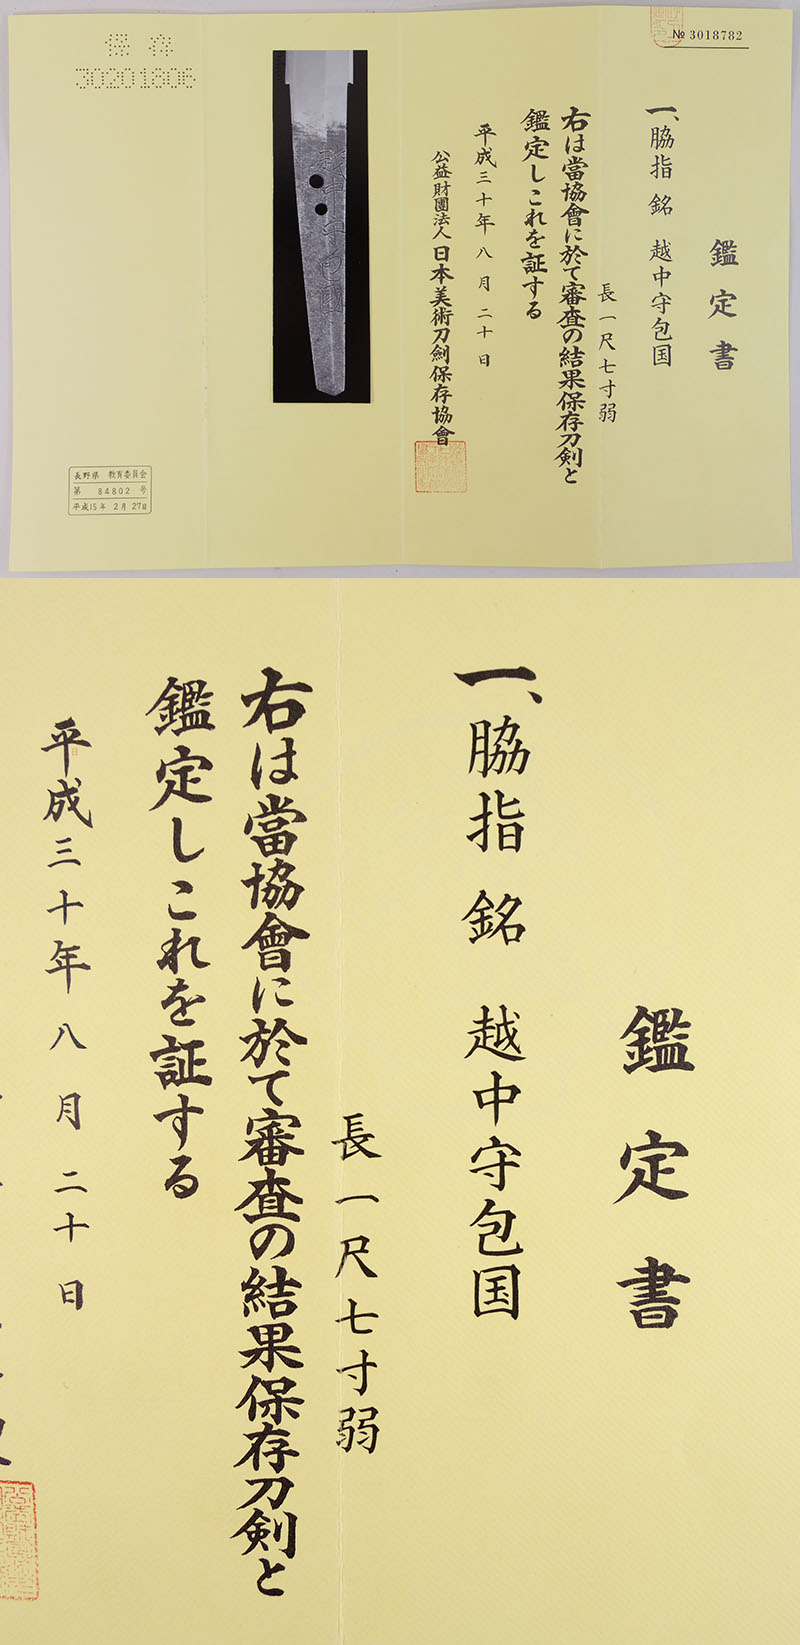 № 3018782
鑑定書
一、脇指 銘 越中守包国
長一尺七寸弱
右は當協會に於て審査の結果保存刀剣と
鑑定しこれを証する
平成三十年八月二十日
公益財團法人日本美術刀劍保存協會
越中守包國
保存
30201806
長野県 教育委員会
第 84802 号
平成15年 2月 27日
鑑定書
一、脇指 銘 越中守包国
長一尺七寸弱
右は當協會に於て審査の結果保存刀剣と
鑑定しこれを証する
平成三十年八月二十日